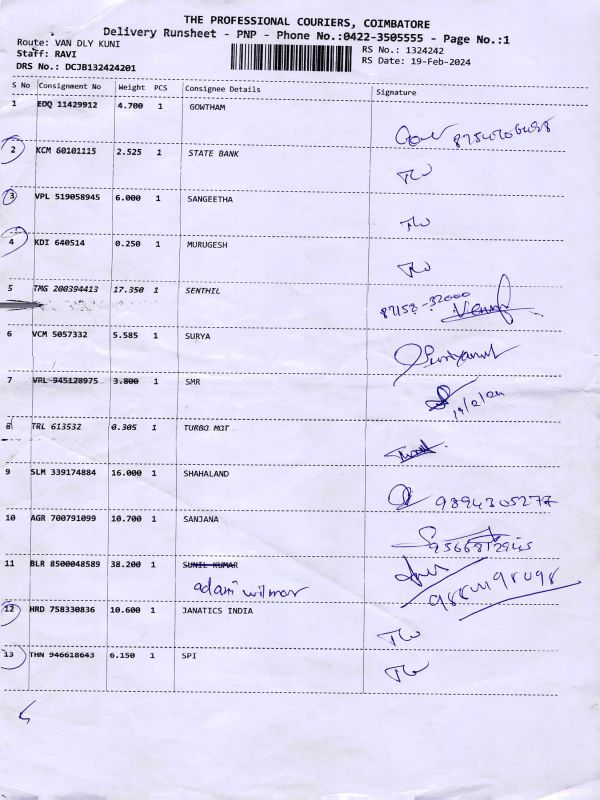 THE PROFESSIONAL COURIERS, COIMBATORE
Delivery Runsheet - PNP - Phone No.:0422-3505555 - Page No.:1
Route: VAN DLY KUNI
RS No.: 1324242
Staff: RAVI
RS Date: 19-Feb-2024
DRS No.: DCJB132424201
S No Consignment No Weight PCS Consignee Details Signature
1 EDQ 11429912 4.700 1 GOWTHAM
2 KCM 60101115 2.525 1 STATE BANK
3 VPL 519058945 6.000 1 SANGEETHA
4 KDI 640514 0.250 1 MURUGESH
5 TMG 200394413 17.350 1 SENTHIL
6 VCM 5057332 5.585 1 SURYA
7 VRL 945128975 3.800 1 SMR
8 TRL 613532 0.305 1 TURBO MGT
9 SLM 339174884 16.000 1 SHAHALAND
9894305277
10 AGR 700791099 10.700 1 SANJANA
11 BLR 8500048589 38.200 1 SUNIL KUMAR
adani wilmar
12 HRD 758330836 10.600 1 JANATICS INDIA
13 THN 946618643 6.150 1 SPI